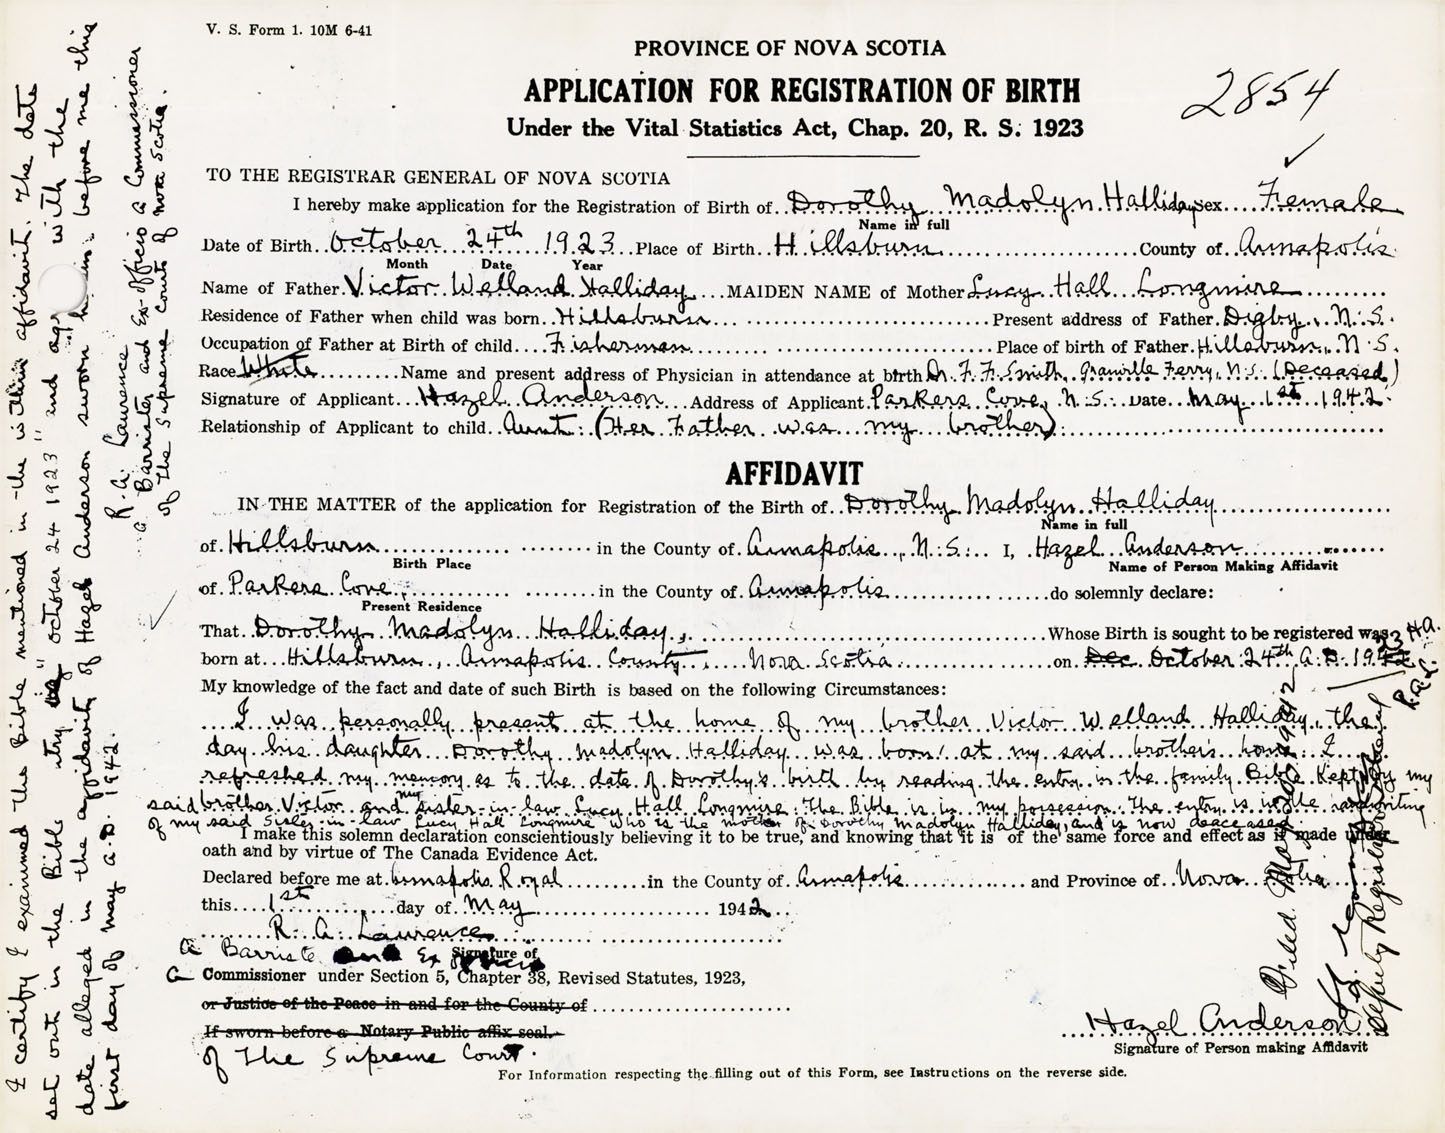 V. S. Form 1. 10M 6-41
PROVINCE OF NOVA SCOTIA
APPLICATION FOR REGISTRATION OF BIRTH
2854
Under the Vital Statistics Act, Chap. 20, R. S. 1923
TO THE REGISTRAR GENERAL OF NOVA SCOTIA
I hereby make application for the Registration of Birth of Dorothy Madolyn Halliday sex Female
Name in full
Date of Birth October 24th 1923 Place of Birth Hillsburn County of Annapolis
Month Date Year
Name of Father Victor Welland Halliday MAIDEN NAME of Mother Lucy Hall Longmire
Residence of Father when child was born Hillsburn Present address of Father Digby, N.S.
Occupation of Father at Birth of child Fisherman Place of birth of Father Hillsburn, N.S.
Race White Name and present address of Physician in attendance at birth Dr. F. F. Smith, Granville Ferry, N.S. (Deceased)
Signature of Applicant Hazel Anderson Address of Applicant Parkers Cove, N.S. Date May 1st 1942
Relationship of Applicant to child Aunt (Her Father was my brother)
AFFIDAVIT
IN THE MATTER of the application for Registration of the Birth of Dorothy Madolyn Halliday
Name in full
of Hillsburn in the County of Annapolis, N.S. I, Hazel Anderson
Birth Place Name of Person Making Affidavit
of Parkers Cove in the County of Annapolis do solemnly declare:
Present Residence
That Dorothy Madolyn Halliday, Whose Birth is sought to be registered was
born at Hillsburn, Annapolis County, Nova Scotia on Dec October 24th A.D. 1923 H.A.
R.A.L.
My knowledge of the fact and date of such Birth is based on the following Circumstances:
I was personally present at the home of my brother Victor Welland Halliday, the
day his daughter Dorothy Madolyn Halliday was born at my said brother's home. I
refreshed my memory as to the date of Dorothy's birth by reading the entry in the family Bible kept by my
said brother Victor and my sister-in-law Lucy Hall Longmire. The Bible is in my possession. The entry is in the handwriting
of my said Sister-in-law Lucy Hall Longmire who is the mother of Dorothy Madolyn Halliday, and is now deceased
I make this solemn declaration conscientiously believing it to be true, and knowing that it is of the same force and effect as if made under
oath and by virtue of The Canada Evidence Act.
Declared before me at Annapolis Royal in the County of Annapolis and Province of Nova Scotia
this 1st day of May 1942
R. A. Laurence
Signature of
a Barrister and Ex officio
a Commissioner under Section 5, Chapter 38, Revised Statutes, 1923,
or Justice of the Peace in and for the County of
If sworn before a Notary Public affix seal.
of The Supreme Court.
Hazel Anderson
Signature of Person making Affidavit
For Information respecting the filling out of this Form, see Instructions on the reverse side.
I certify I examined the Bible mentioned in the within affidavit. The date
set out in the Bible entry is "October 24 1923" and agrees with the
date alleged in the affidavit of Hazel Anderson sworn herein before me this
first day of May A.D. 1942.
R. A. Laurence
a Barrister and Ex-Officio a Commissioner
of The Supreme Court of Nova Scotia.
Filed May 20 1942
Deputy Registrar General